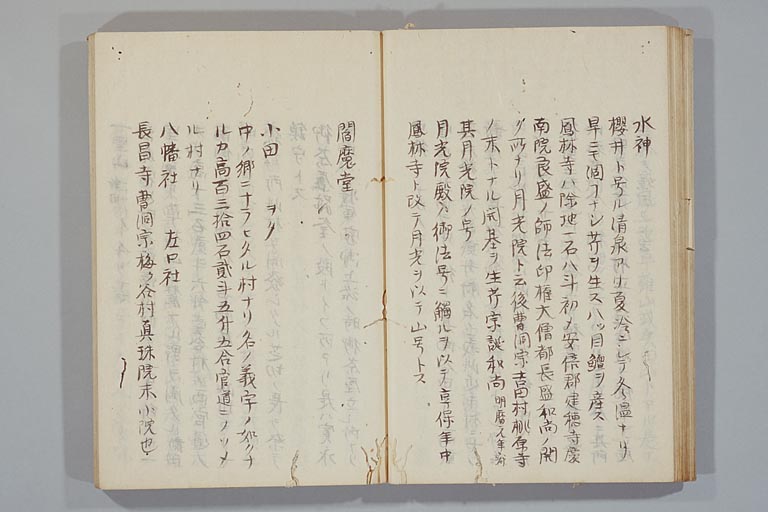 水神
櫻井ト号ル清泉アリ夏冷ニシテ冬温ナリ
旱ニモ涸フナシ芹ヲ生ス八ツ目鱣ヲ産ス
鳳林寺ハ除地一石八斗初メ安倍郡建穂寺慶
南院良盛ノ師法印権大僧都長盛和尚ノ開
ク所ナリ月光院ト云後曹洞宗吉田村桃原寺
ノ末トナル開基ヲ生芹宗誕和尚 明暦元年
其月光院ノ号
月光院殿ノ御法号ニ觸ルヲ以テ享保年中
鳳林寺ト改テ月光ヲ以テ山号トス
閻魔堂
小田 ヲダ
中ノ郷ニナラヒタル村ナリ名ノ義字ノ如クナ
ルカ高百三拾四石貳斗五升五合官道ニノソメ
ル村ナリ
八幡社 左口社
長昌寺曹洞宗梅ヶ谷村真珠院末小院也